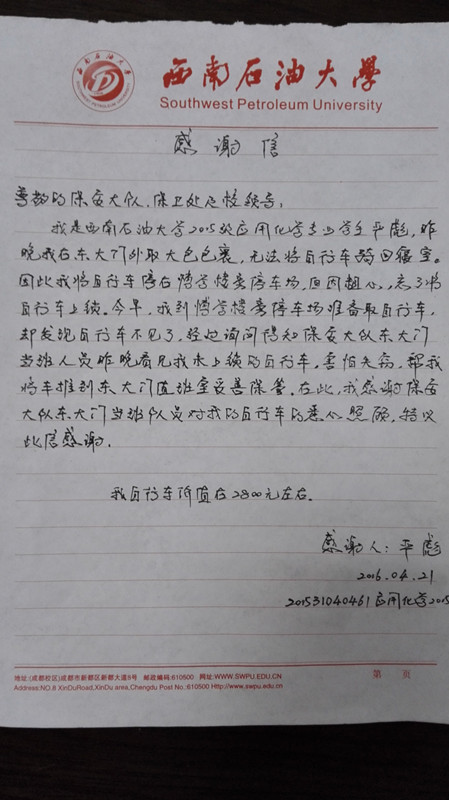 西南石油大学
SOUTHWEST PETROLEUM UNIVERSITY
西南石油大學
Southwest Petroleum University
感谢信
尊敬的保安大队、保卫处及校领导:
我是西南石油大学2015级应用化学专业学生平彪,昨
晚我在东大门外取大包包裹,无法将自行车骑回寝室。
因此我将自行车停在博学楼旁停车场,但因粗心,忘了将
自行车上锁。今早,我到博学楼旁停车场准备取自行车,
却发现自行车不见了,经过询问得知保安大队东大门
当班人员昨晚看见我未上锁的自行车,害怕失窃,帮我
将车推到东大门值班室妥善保管。在此,我感谢保安
大队东大门当班队员对我的自行车的悉心照顾,特以
此信感谢。
我自行车价值在2800元左右。
感谢人:平彪
2016.04.21
201531040461应用化学2015
地址:(成都校区)成都市新都区新都大道8号 邮政编码:610500 网址:WWW.SWPU.EDU.CN 第 页
Address:NO.8 XinDuRoad,XinDu area,Chengdu Post No.:610500 Http://www.swpu.edu.cn